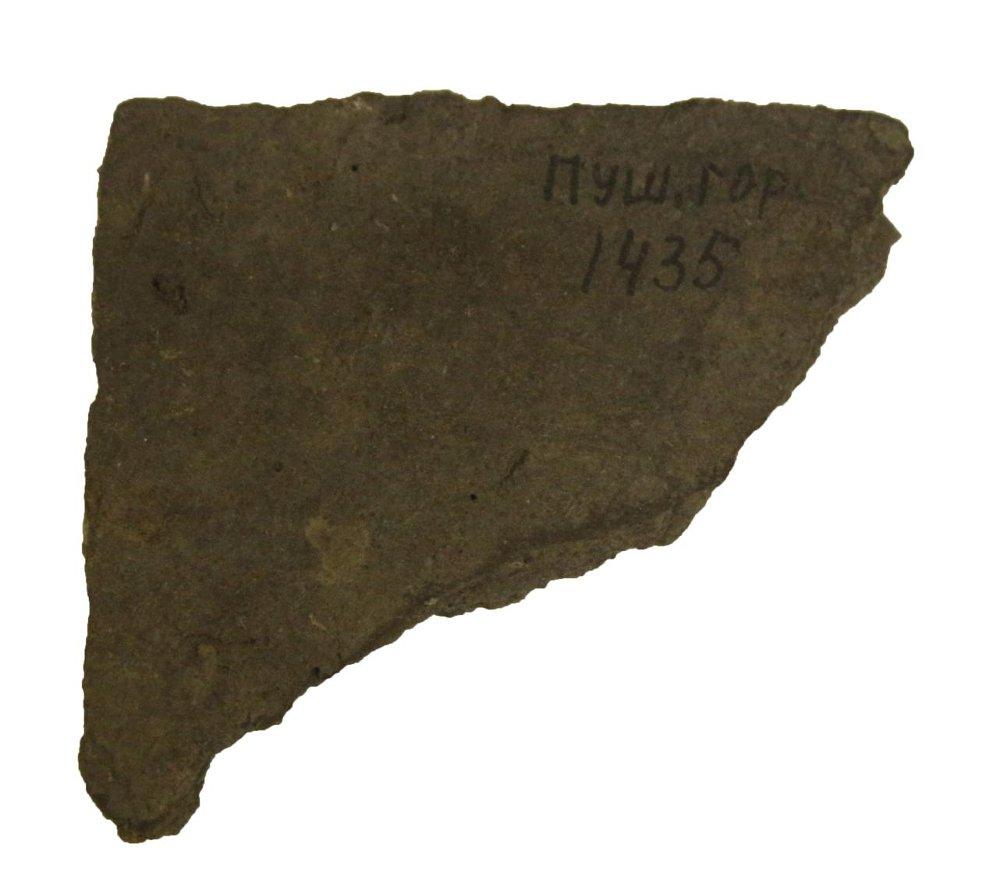 Пуш. гор.
1435